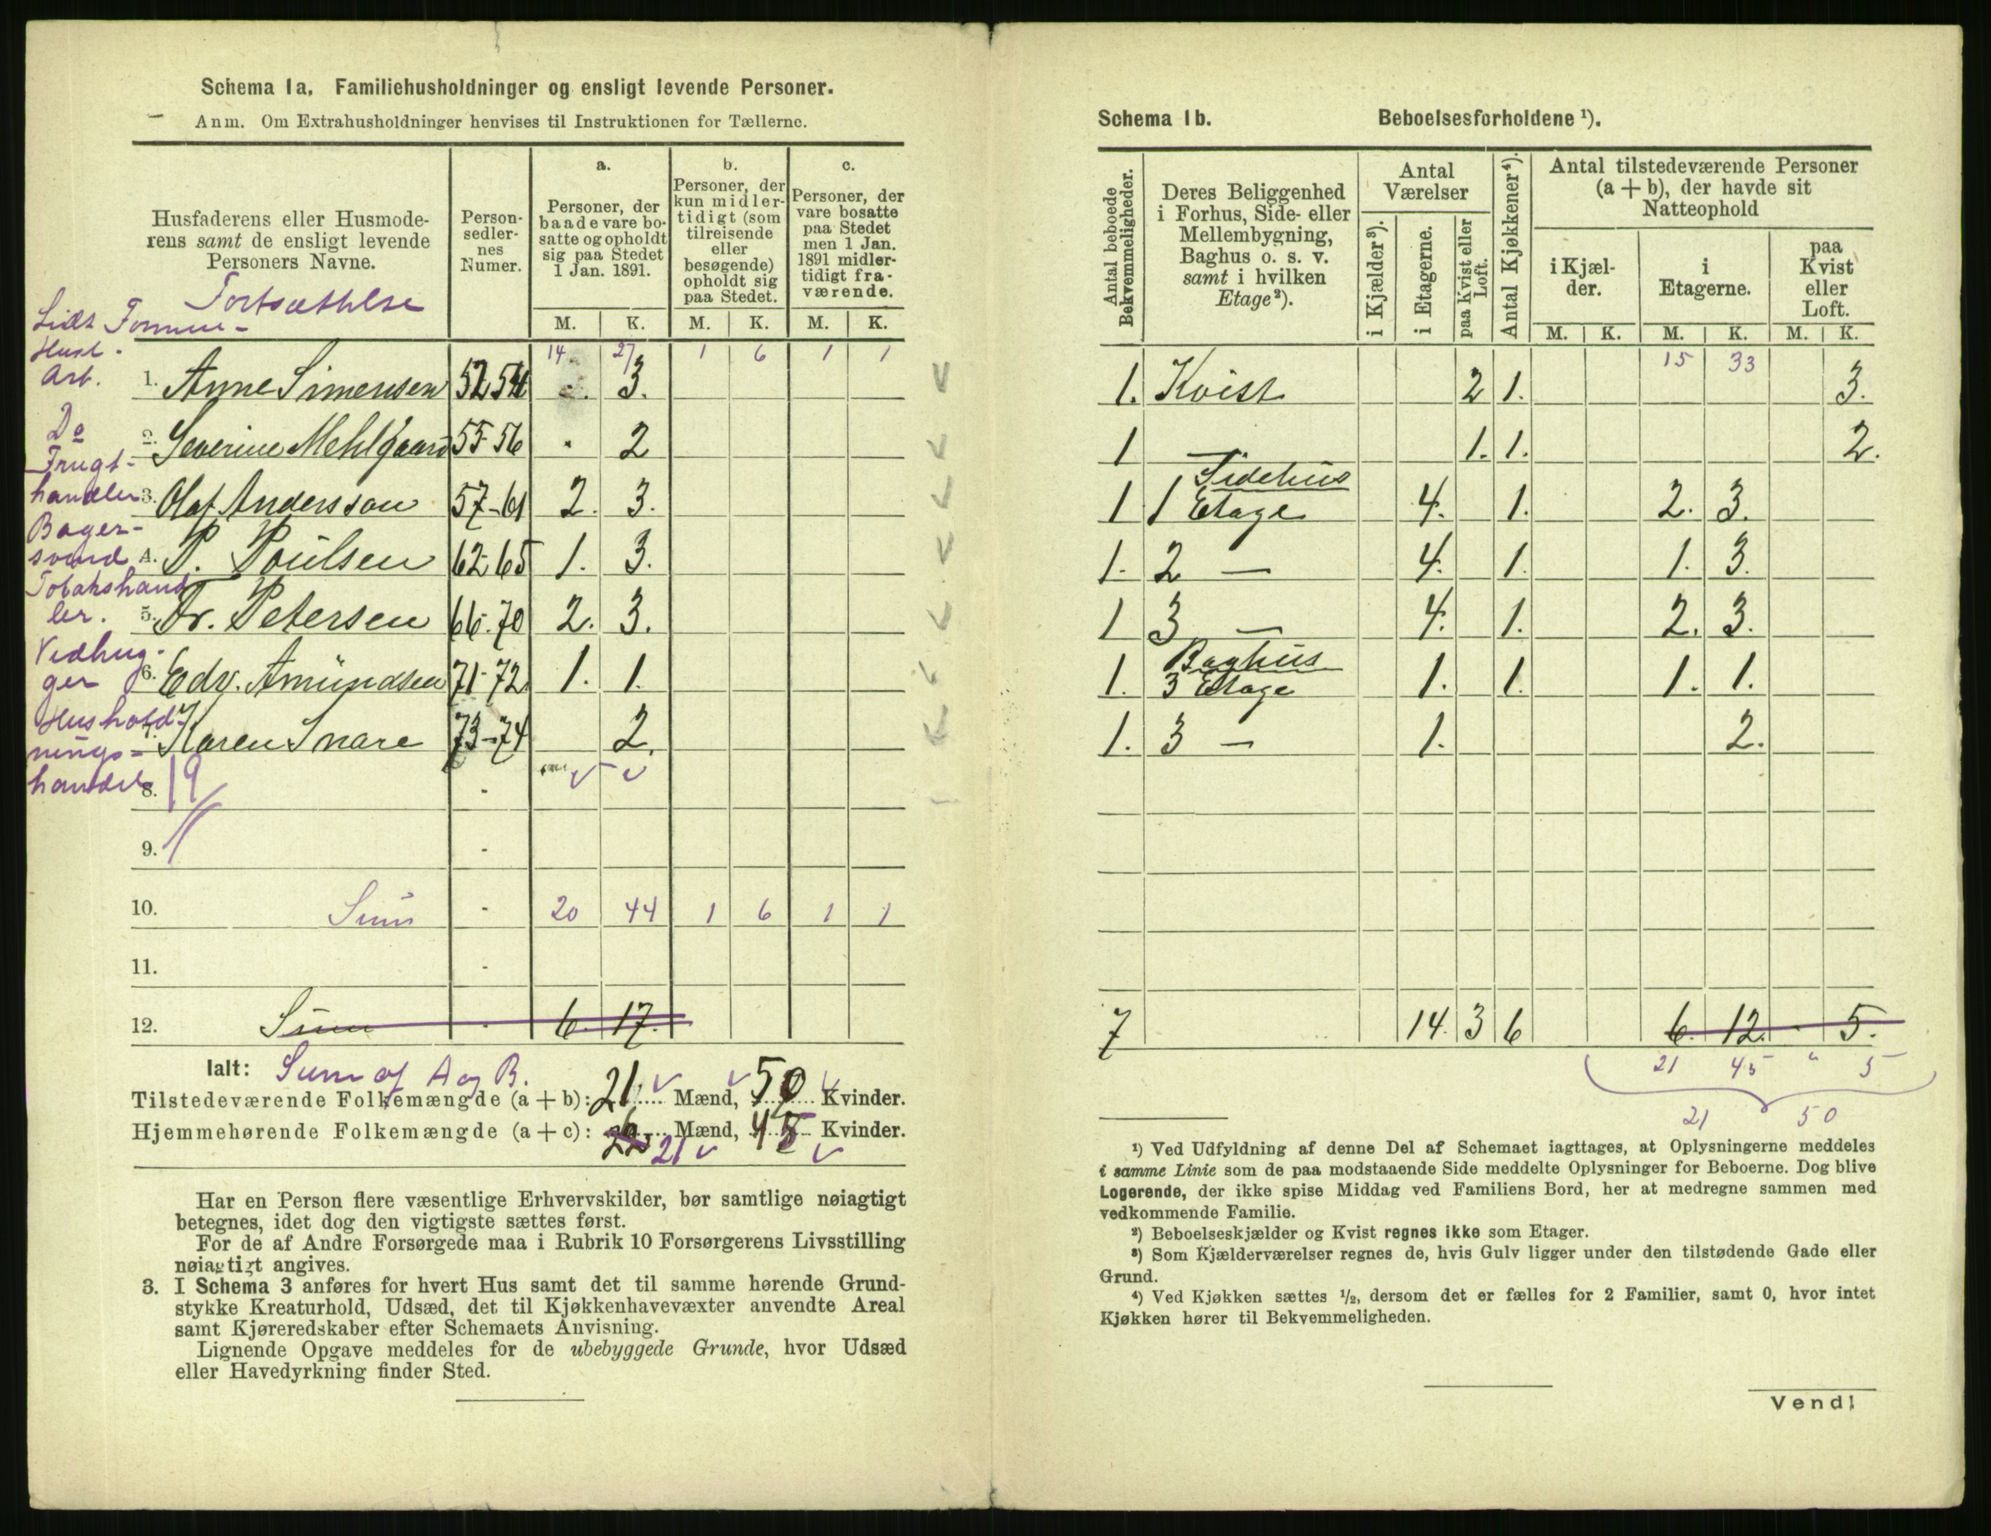 Schema 1a. Familiehusholdninger og ensligt levende Personer.
Anm. Om Extrahusholdninger henvises til Instruktionen for Tællerne.
Husfaderens eller Husmode-
rens samt de ensligt levende
Personers Navne.
Person-
sedler-
nes
Numer.
a.
Personer, der
baade vare bo-
satte og opholdt
sig paa Stedet
1 Jan. 1891.
b.
Personer, der
kun midler-
tidigt (som
tilreisende
eller
besøgende)
opholdt sig
paa Stedet.
c.
Personer, der
vare bosatte
paa Stedet
men 1 Jan.
1891 midler-
tidigt fra-
værende.
M. K. M. K. M. K.
Fortsættelse
Lidt Formue-
Husl.
Arb.
14 27 1 6 1 1
1. Anne Simensen 52 54 3.
Do
2. Severine Mehlgaard 55-56 2
Frugt-
handler
3. Olaf Andersson 57-61 2. 3.
Bager-
svend
4. P. Poulsen 62-65 1. 3.
Tobakshand
ler.
5. Fr. Petersen 66-70 2. 3.
Vedhug-
ger
6. Edv. Amundsen 71-72 1. 1.
Hushold-
nings-
handel
7. Karen Snare 73-74 2.
8. 19
9.
10. Sum 20 44 1 6 1 1
11.
12. Sum 6. 17.
Ialt: Sum af A og B.
Tilstedeværende Folkemængde (a + b): 21 Mænd, 50 Kvinder.
Hjemmehørende Folkemængde (a + c): 21 Mænd, 45 Kvinder.
Har en Person flere væsentlige Erhvervskilder, bør samtlige nøiagtigt
betegnes, idet dog den vigtigste sættes først.
For de af Andre Forsørgede maa i Rubrik 10 Forsørgerens Livsstilling
nøiagtigt angives.
3. I Schema 3 anføres for hvert Hus samt det til samme hørende Grund-
stykke Kreaturhold, Udsæd, det til Kjøkkenhavevæxter anvendte Areal
samt Kjøreredskaber efter Schemaets Anvisning.
Lignende Opgave meddeles for de ubebyggede Grunde, hvor Udsæd
eller Havedyrkning finder Sted.
Schema 1b. Beboelsesforholdene ¹).
Antal beboede
Bekvemmeligheder.
Deres Beliggenhed
i Forhus, Side- eller
Mellembygning,
Baghus o. s. v.
samt i hvilken
Etage²).
Antal
Værelser
i Kjælder³).
i Etagerne.
paa Kvist eller
Loft.
Antal Kjøkkener⁴).
Antal tilstedeværende Personer
(a + b), der havde sit
Natteophold
i Kjæl-
der.
i
Etagerne.
paa
Kvist
eller
Loft.
M. K. M. K. M. K.
15 33
1. Kvist 2 1. 3.
1 — 1. 1. 2.
Sidehus
1 1 Etage 4. 1. 2. 3.
1. 2 — 4. 1. 1. 3.
1 3 — 4. 1. 2. 3.
Baghus
1. 3 Etage 1. 1. 1. 1.
1. 3 — 1. 2.
7 14. 3 6 6. 12. 5.
21 45 " 5
21 50
¹) Ved Udfyldning af denne Del af Schemaet iagttages, at Oplysningerne meddeles
i samme Linie som de paa modstaaende Side meddelte Oplysninger for Beboerne. Dog blive
Logerende, der ikke spise Middag ved Familiens Bord, her at medregne sammen med
vedkommende Familie.
²) Beboelseskjælder og Kvist regnes ikke som Etager.
³) Som Kjælderværelser regnes de, hvis Gulv ligger under den tilstødende Gade eller
Grund.
⁴) Ved Kjøkken sættes ½, dersom det er fælles for 2 Familier, samt 0, hvor intet
Kjøkken hører til Bekvemmeligheden.
Vend!